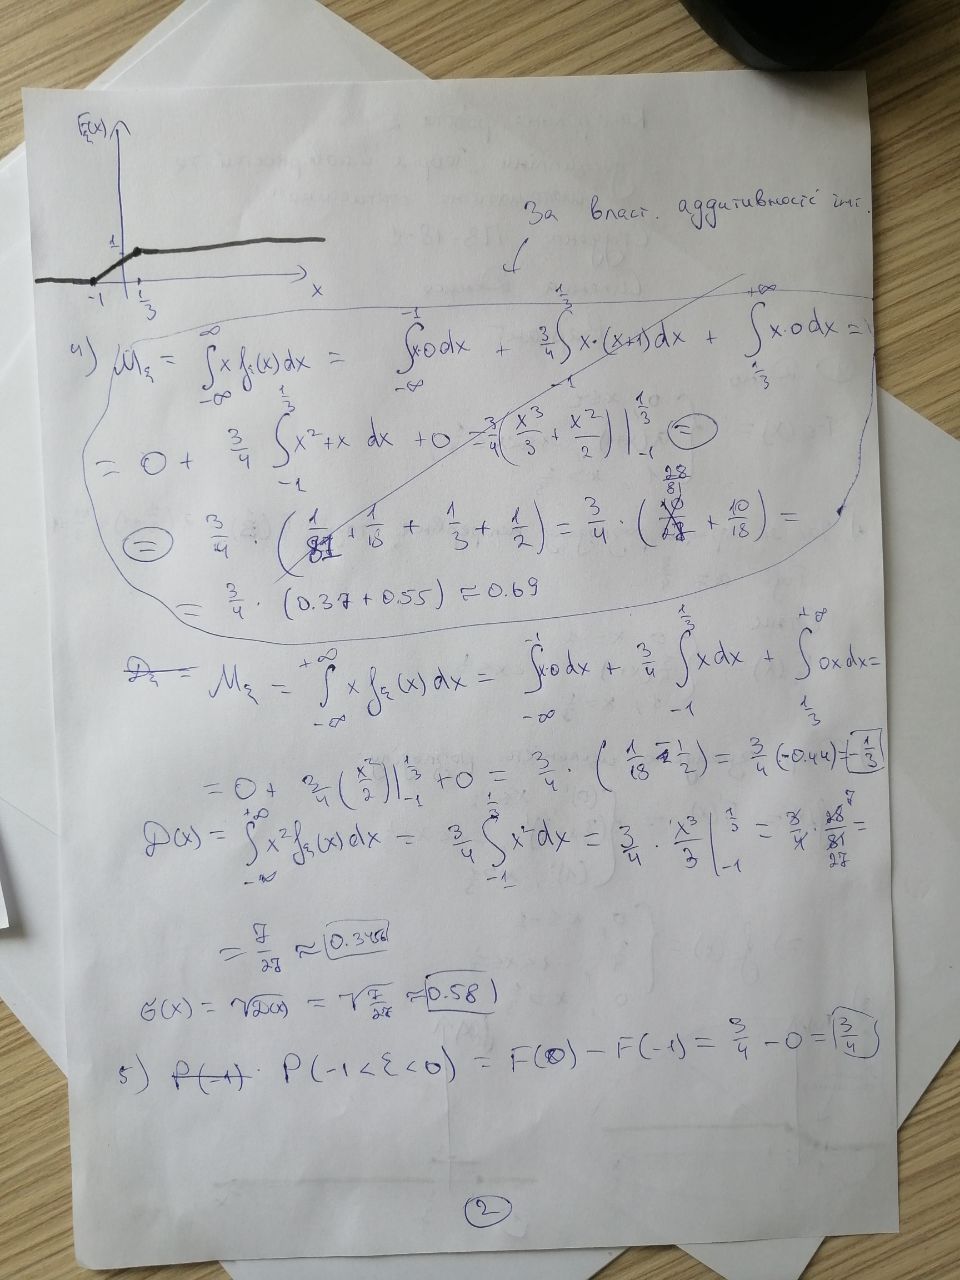 F_ξ(x)
1
-1 1/3 x
За власт. аддитивності інт.
4) M_ξ = ∫_{-∞}^{∞} x f_ξ(x) dx = ∫_{-∞}^{-1} x·0 dx + 3/4 ∫_{-1}^{1/3} x·(x+1) dx + ∫_{1/3}^{+∞} x·0 dx =
= 0 + 3/4 ∫_{-1}^{1/3} x² + x dx + 0 = 3/4 (x³/3 + x²/2) |_{-1}^{1/3} =
= 3/4 · (1/81 + 1/18 + 1/3 + 1/2) = 3/4 · (28/81 + 10/18) =
= 3/4 · (0.37 + 0.55) ≈ 0.69
D_ξ = M_ξ = ∫_{-∞}^{+∞} x f_ξ(x) dx = ∫_{-∞}^{-1} x·0 dx + 3/4 ∫_{-1}^{1/3} x dx + ∫_{1/3}^{+∞} 0x dx =
= 0 + 3/4 (x²/2) |_{-1}^{1/3} + 0 = 3/4 · (1/18 - 1/2) = 3/4 (-0.44) = -1/3
D(x) = ∫_{-∞}^{+∞} x² f_ξ(x) dx = 3/4 ∫_{-1}^{1/3} x² dx = 3/4 · x³/3 |_{-1}^{1/3} = 3/4 · 28/81 =
= 7/27 ≈ 0.3456
σ(x) = √D(x) = √7/27 ≈ 0.58
5) P(-1) · P(-1 < ξ < 0) = F(0) - F(-1) = 3/4 - 0 = 3/4
2